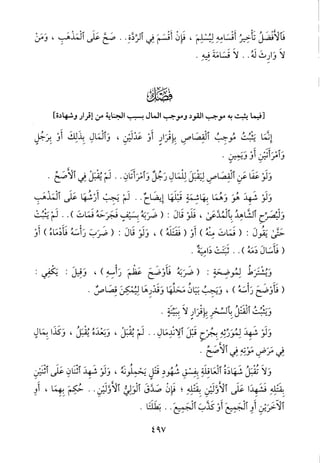 فالأفضل تأخير أقسامه ليسلم ، فإن أقسم في الردة .. صح على المذهب ، ومن
لا وارث له .. لا قسامة فيه .
فصل
[فيما يثبت به موجب القود وموجب المال بسبب الجناية من إقرار وشهادة]
إنما يثبت موجب القصاص بإقرار أو عدلين ، والمال بذلك أو برجل
وامرأتين أو ويمين .
ولو عفا عن القصاص ليقبل للمال رجل وامرأتان .. لم يقبل في الأصح .
ولو شهد هو وهما بهاشمة قبلها إيضاح .. لم يجب أرشها على المذهب
وليصرح الشاهد بالمدعى ، فلو قال : ( ضربه بسيف فجرحه فمات ) .. لم يثبت
حتى يقول : ( فمات منه ) أو ( فقتله ) ، ولو قال : ( ضرب رأسه فأدماه ) أو
( فأسال دمه ) .. ثبتت دامية .
ويشترط لموضحة : ( ضربه فأوضح عظم رأسه ) ، وقيل : يكفي :
( فأوضح رأسه ) ، ويجب بيان محلها وقدرها ليمكن قصاص .
ويثبت القتل بالسحر بإقرار لا ببينة .
ولو شهد لمورثه بجرح قبل الاندمال .. لم يقبل ، وبعده يقبل ، وكذا بمال
في مرض موته في الأصح .
ولا تقبل شهادة العاقلة بفسق شهود قتل يحملونه ، ولو شهد اثنان على اثنين
بقتله فشهدا على الأولين بقتله ؛ فإن صدق الولي الأولين .. حكم بهما ، أو
الآخرين أو الجميع أو كذب الجميع .. بطلتا .
٤٩٧